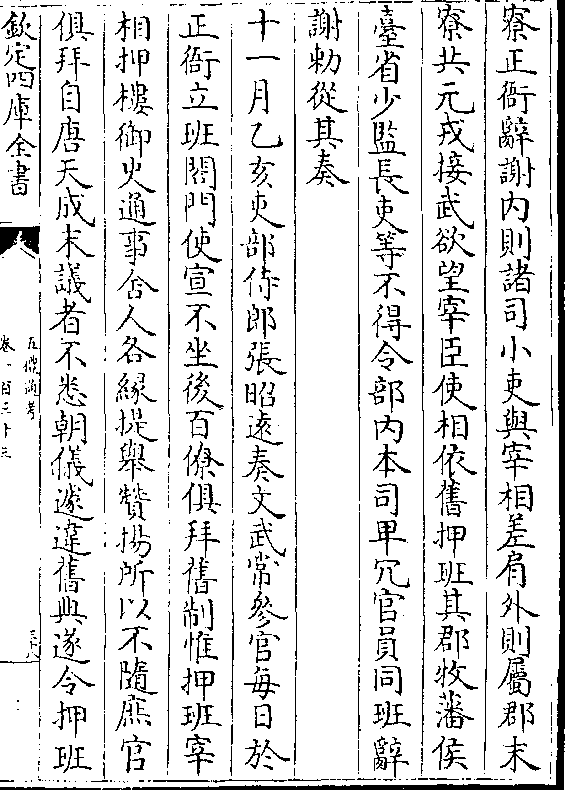 寮正衙辭謝内則諸司小吏與宰相差肩外則屬郡末
寮共元戎接武欲望宰臣使相依舊押班其郡牧藩侯
臺省少監長吏等不得令部内本司卑冗官員同班辭
謝勅從其奏
十一月乙亥吏部侍郎張昭遠奏文武常參官每日於
正衙立班閤門使宣不坐後百僚俱拜舊制惟押班宰
相押樓御史通事舍人各緣提舉贊揚所以不隨庶官
俱拜自唐天成末議者不悉朝儀遽違舊典遂令押班
欽定四庫全書
五禮通考
卷一百三十三
三八